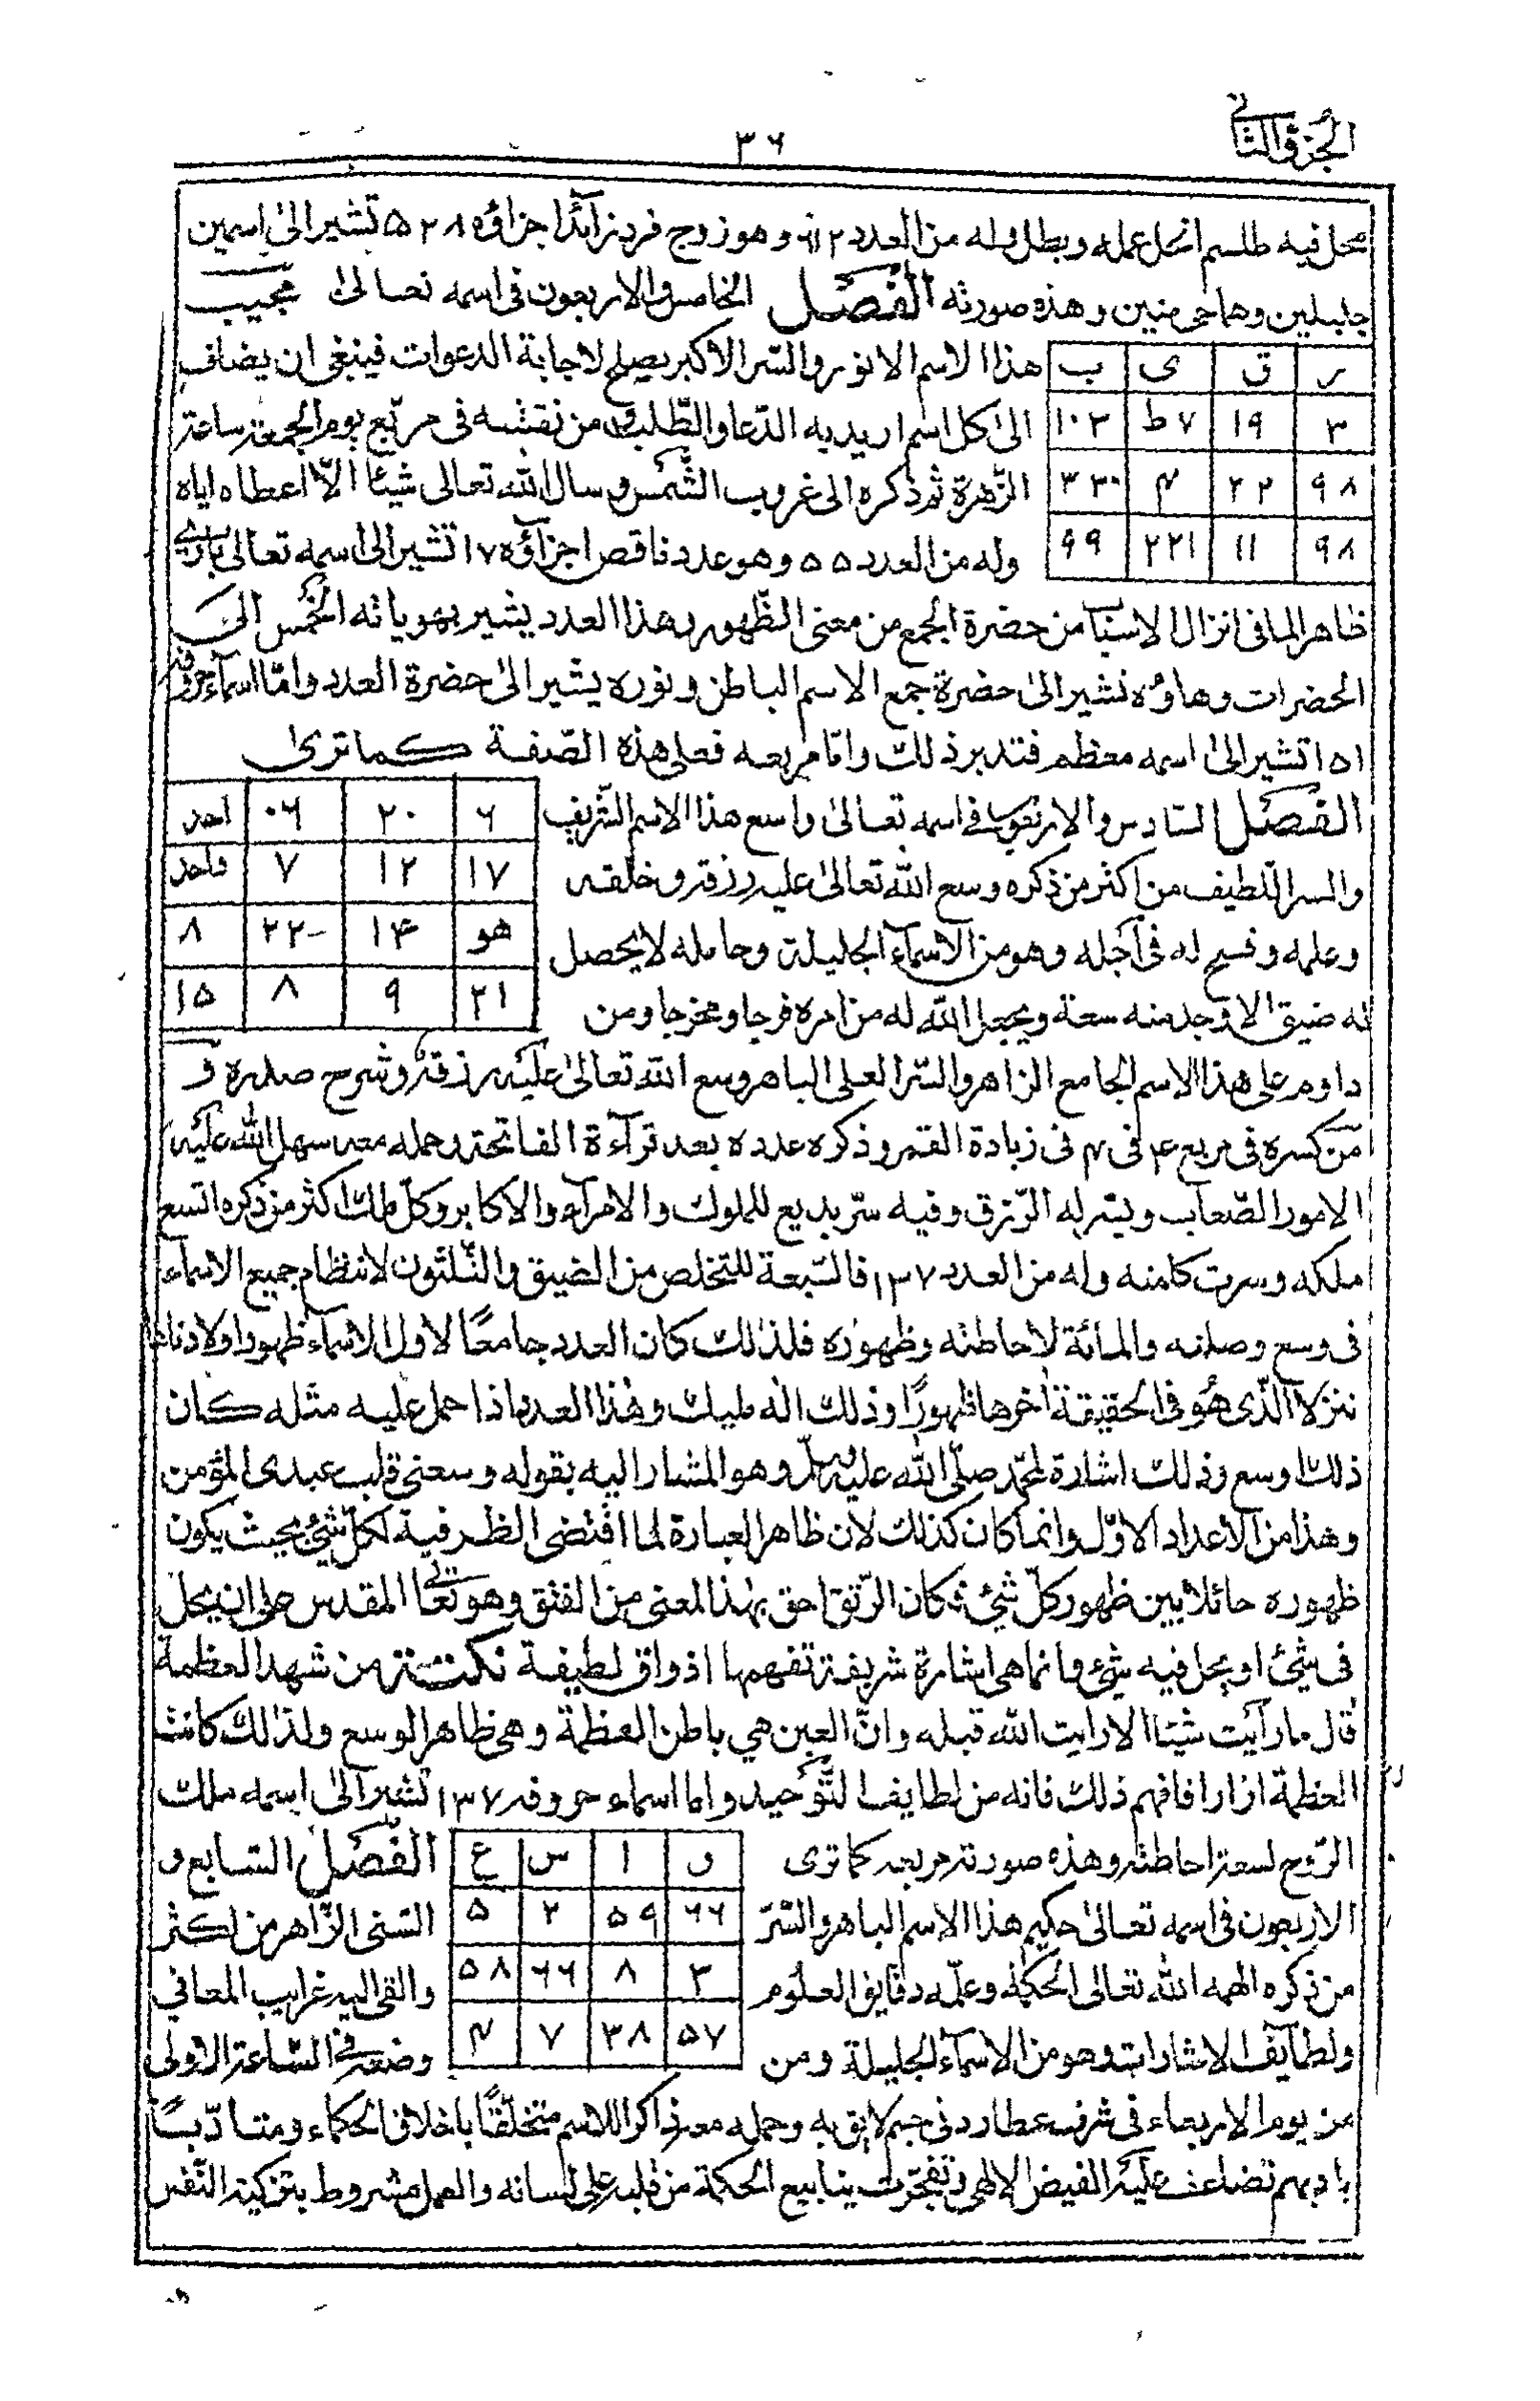 الجزؤ الثانى
٣٦
محل فيه طلسم انحل عمله وبطل وله من العدد ٣١٢ وهو زوج فرد زآئد اجزاؤه ٥٢٨ تشير الى اسمين
جليلين وهما حى منين وهذه صورته الفصل الخامس والاربعون فى اسمه تعالى مجيب
ر ق ى ب هذا الاسم الانور والسر الاكبر يصلح لاجابة الدعوات فينبغى ان يضاف
٣ ١٩ ٧ط ١٠٣ الى كل اسم اريد به الدعا والطلب ومن نقشه فى مربع يوم الجمعة ساعة
٩٨ ٢٢ ٤ ٣٣٠ الزهرة ثم ذكره الى غروب الشمس وسال الله تعالى شيئا الا اعطاه اياه
٩٨ ١١ ٢٢١ ٩٩ وله من العدد ٥٥ وهو عدد ناقص اجزآؤه ١٧ تشير الى اسمه تعالى بارى
ظاهر المافى انزال الاسبآ من حضرة الجمع من معنى الظهور وهذا العدد يشير بهوياته الخمس الى
الحضرات وهاؤه تشير الى حضرة جمع الاسم الباطن ونوره يشير الى حضرة العدد واما اسمآء حروفه
١٥١ تشير الى اسمه معظم فتدبر ذلك واما مربعه فعلى هذه الصفة كما ترى
الفصل السادس والاربعون فى اسمه تعالى واسع هذا الاسم الشريف ٦ ٢٠ ٠٦ احد
والسر اللطيف من اكثر من ذكره وسع الله تعالى عليه رزقه وخلقه ١٧ ١٢ ٧ واحد
وعلمه وفسح له فى اجله وهو من الاسمآء الجليلة وحامله لا يحصل هو ١٤ ٢٢ ٨
له ضيق الا وجد منه سعة ويجعل الله له من امره فرجا ومخرجا ومن ٢١ ٩ ٨ ١٥
داوم على هذا الاسم الجامع الزاهر والسر العلى الباهر وسع الله تعالى عليه رزقه وشرح صدره و
من كسره فى مربع ٤ فى ٤ فى زيادة القمر وذكره عدده بعد قرآءة الفاتحة وحمله معه سهل الله عليه
الامور الصعاب ويسر له الرزق وفيه سر بديع للملوك والامرآء والاكابر وكل ملك اكثر من ذكره اتسع
ملكه وسرت كامنه وله من العدد ١٣٧ فالسبعة للتخلص من الضيق والثلثون لانتظام جميع الاسمآء
فى وسع وصلته والمائة لاحاطته وظهوره فلذلك كان العدد جامعا لاول الاسمآء ظهورا ولادناها
تنزلا الذى هو فى الحقيقة اخرها ظهورا وذلك اله مليك وهذا العدد اذا حمل عليه مثله كان
ذلك اوسع وذلك اشارة لمحمد صلى الله عليه وسلم وهو المشار اليه بقوله وسعنى قلب عبدى المؤمن
وهذا من الاعداد الاول وانما كان كذلك لان ظاهر العبارة لما اقتضى الظرفية لكل شئ بحيث يكون
ظهوره حائلا بين ظهور كل شئ فكان الرتق احق بهذا المعنى من الفتق وهو تعالى المقدس على ان يحل
فى شئ او يحل فيه شئ وانما هى اشارة شريفة تفهمها اذواق لطيفة نكتة من شهد العظمة
قال ما رآيت شيئا الا رايت الله قبله وان العين هي باطن العظمة وهى ظاهر الوسع ولذلك كانت
العظمة ازارا فافهم ذلك فانه من لطايف التوحيد واما اسماء حروفه ١٣٧ تشير الى اسمه ملك
الروح لسعة احاطته وهذه صورة مربعه كما ترى و ا س ع الفصل السابع و
الاربعون فى اسمه تعالى حكيم هذا الاسم الباهر والسر ٦٦ ٥٩ ٢ ٥ السنى الزاهر من اكثر
من ذكره الهمه الله تعالى الحكمة وعلمه دقايق العلوم ٣ ٨ ٦٦ ٥٨ والقى اليه غرايب المعاني
ولطآيف الاشارات وهو من الاسمآء الجليلة ومن ٥٧ ٣٨ ٧ ٤ وضعه فى الساعة الاولى
من يوم الاربعاء فى شرف عطارد فى جسم لايق به وحمله معه ذاكرا للاسم متخلقا باخلاق الحكماء ومتادبا
بادبهم تضاعف عليه الفيض الالهى وتفجرت ينابيع الحكمة من قلبه على لسانه والعمل مشروط بتزكية النفس